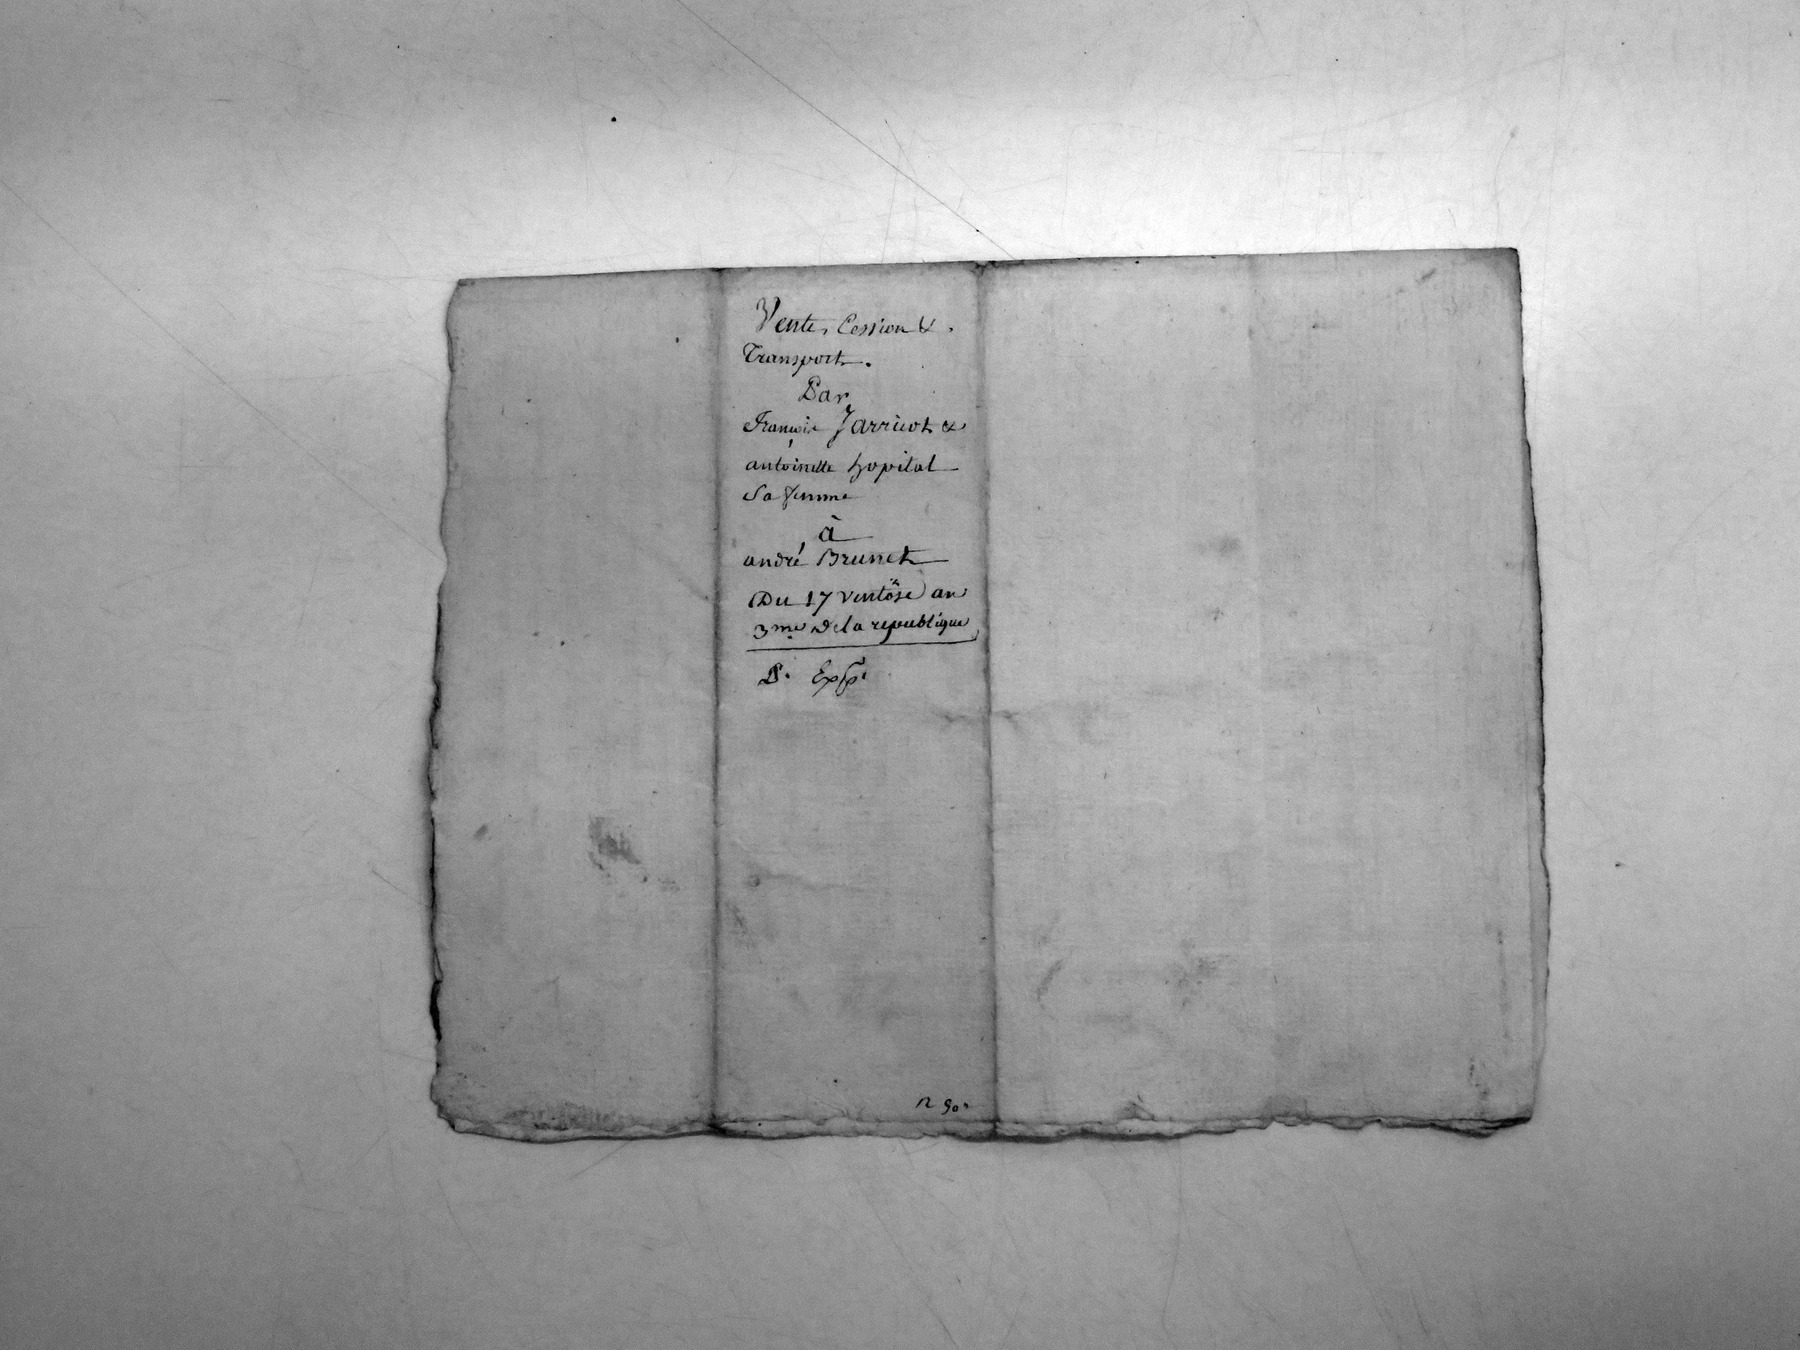 Vente, Cession &
Transport.
Par
François Jarricot &
antoinette hopital
Sa femme
à
andré Brunet
Du 17 ventôse an
3me De la republique
n 90